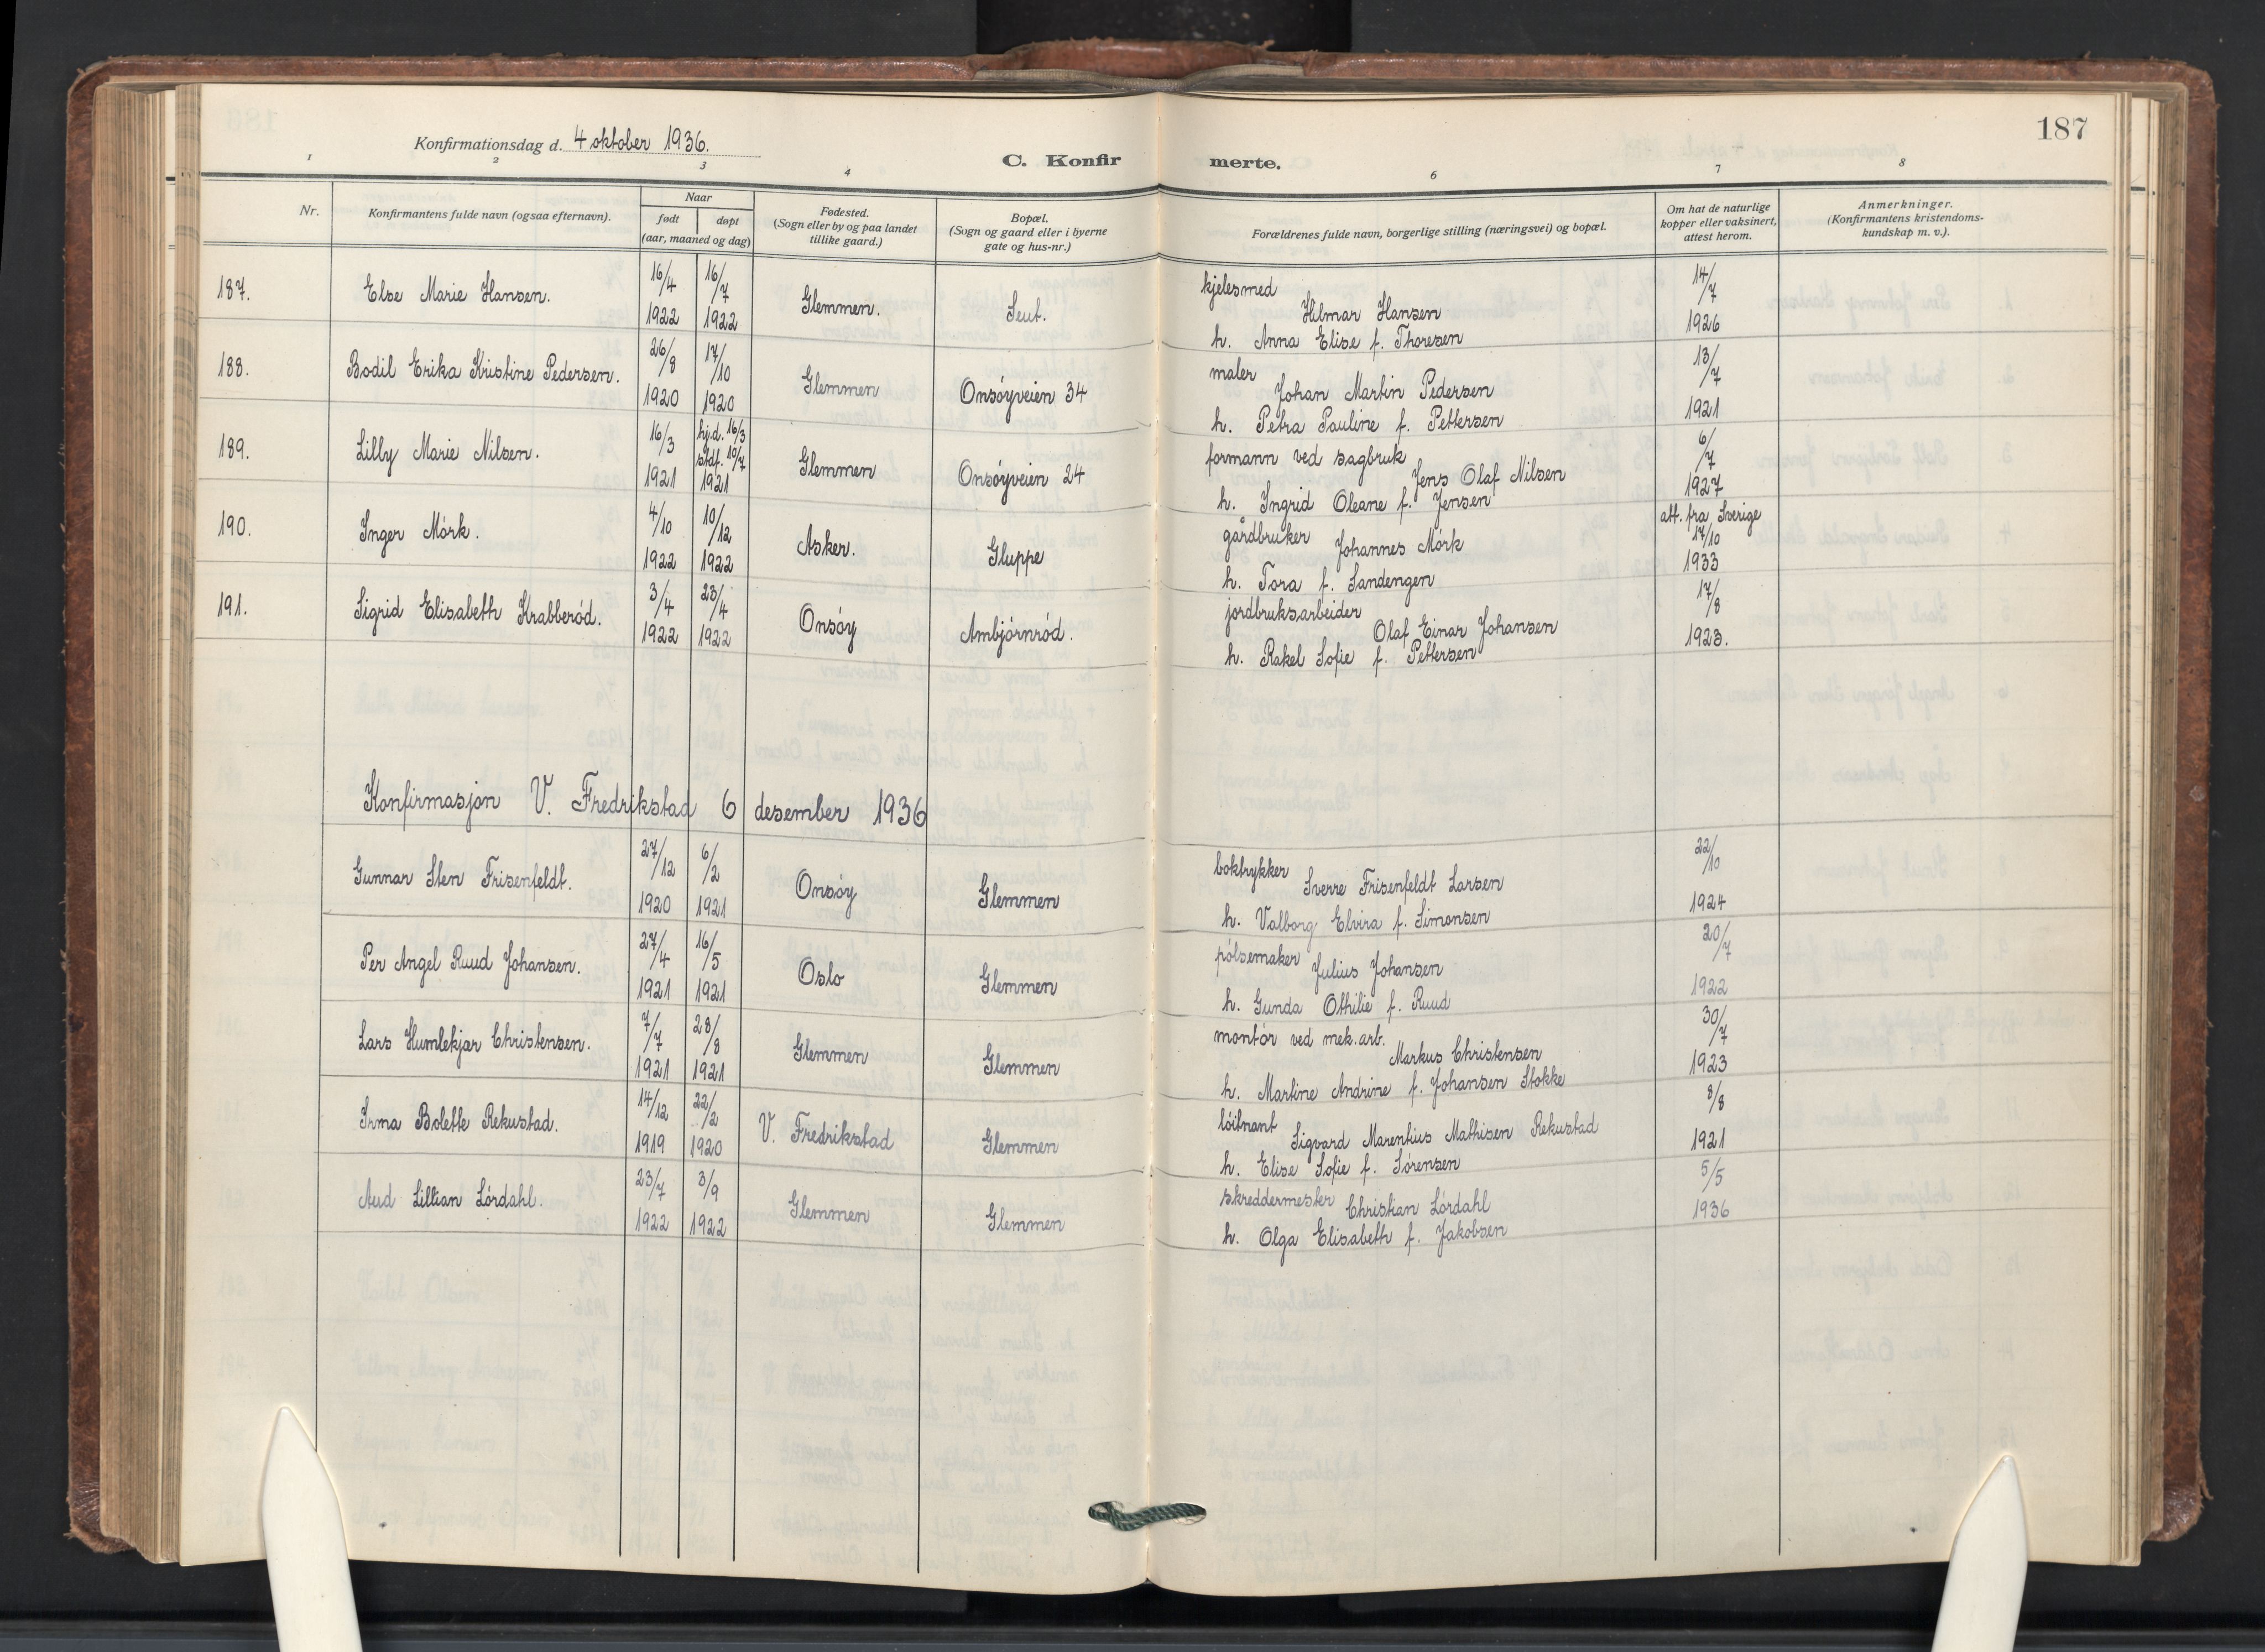 187
Konfirmationsdag d. 4 oktober 1936.
C. Konfirmerte.
1 2 3 4 6 7 8
Nr.
Konfirmantens fulde navn (ogsaa efternavn).
Naar
født døpt
(aar, maaned og dag)
Fødested.
(Sogn eller by og paa landet
tillike gaard.)
Bopæl.
(Sogn og gaard eller i byerne
gate og hus-nr.)
Forældrenes fulde navn, borgerlige stilling (næringsvei) og bopæl.
Om hat de naturlige
kopper eller vaksinert,
attest herom.
Anmerkninger.
(Konfirmantens kristendoms-
kundskap m. v.).
187. Else Marie Hansen. 16/4 1922 16/7 1922 Glemmen. Seut.
kjelesmed
Hilmar Hansen
h. Anna Elise f. Thoresen
14/7 1926
188. Bodil Erika Kristine Pedersen. 26/8 1920 17/10 1920 Glemmen Onsøyveien 34
maler
Johan Martin Pedersen
h. Petra Pauline f. Pettersen
13/7 1921
189. Lilly Marie Nilsen. 16/3 1921 hj.d. 16/3 stdf. 10/7 1921 Glemmen Onsøyveien 24
formann ved sagbruk
Jens Olaf Nilsen
h. Ingrid Oleane f. Jensen
6/7 1927
190. Inger Mørk. 4/10 1922 10/12 1922 Asker. Gluppe
gårdbruker Johannes Mørk
h. Tora f. Sandengen
att. fra Sverige
17/10 1933
191. Sigrid Elisabeth Krabberød. 3/4 1922 23/4 1922 Onsøy Ambjørnrød.
jordbruksarbeider
Olaf Einar Johansen
h. Rakel Sofie f. Pettersen
17/8 1923.
Konfirmasjon V. Fredrikstad 6 desember 1936
Gunnar Sten Frisenfeldt. 27/12 1920 6/2 1921 Onsøy Glemmen
boktrykker
Sverre Frisenfeldt Larsen
h. Valborg Elvira f. Simonsen
22/10 1924
Per Angel Ruud Johansen. 27/4 1921 16/5 1921 Oslo Glemmen
pølsemaker
Julius Johansen
h. Gunda Othilie f. Ruud
20/7 1922
Lars Humlekjær Christensen. 7/7 1921 28/8 1921 Glemmen Glemmen
montør ved mek. arb.
Markus Christensen
h. Martine Andrine f. Johansen Stokke
30/7 1923
Irma Bolette Rekustad. 14/12 1919 22/2 1920 V. Fredrikstad Glemmen
løitnant
Sigvard Marentius Mathisen Rekustad
h. Elise Sofie f. Sørensen
8/8 1921
Aud Lillian Lørdahl. 23/7 1922 3/9 1922 Glemmen Glemmen
skreddermester
Christian Lørdahl
h. Olga Elisabeth f. Jakobsen
5/5 1936